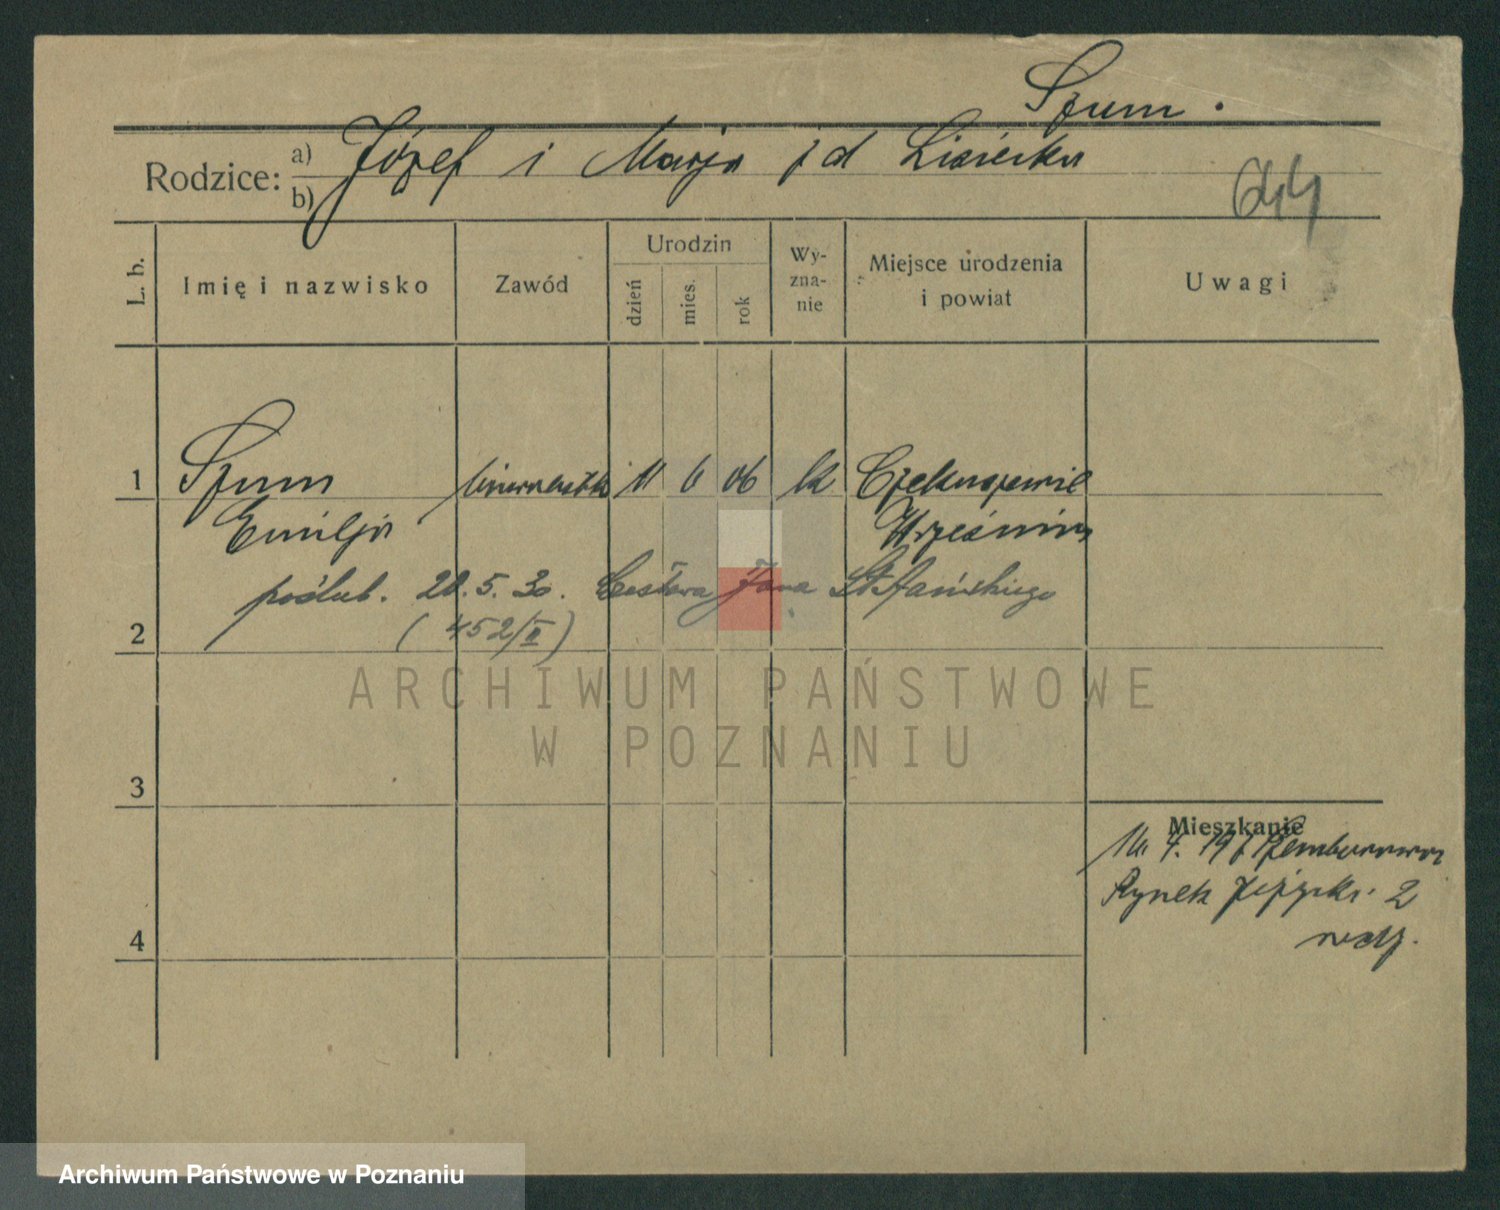 Szum.
Rodzice: a) Józef i Marja z d Lisiecka
b)
644
L. b.
Imię i nazwisko
Zawód
Urodzin
dzień
mies.
rok
Wy-
zna-
nie
Miejsce urodzenia
i powiat
Uwagi
1 Szum 11 6 06 rk
Emilja Września
poślub. 20.5.30. Jana Stefańskiego
(452/II)
2
3
4
Mieszkanie
Rynek Jeżycki 2
ARCHIWUM PAŃSTWOWE
W POZNANIU
Archiwum Państwowe w Poznaniu